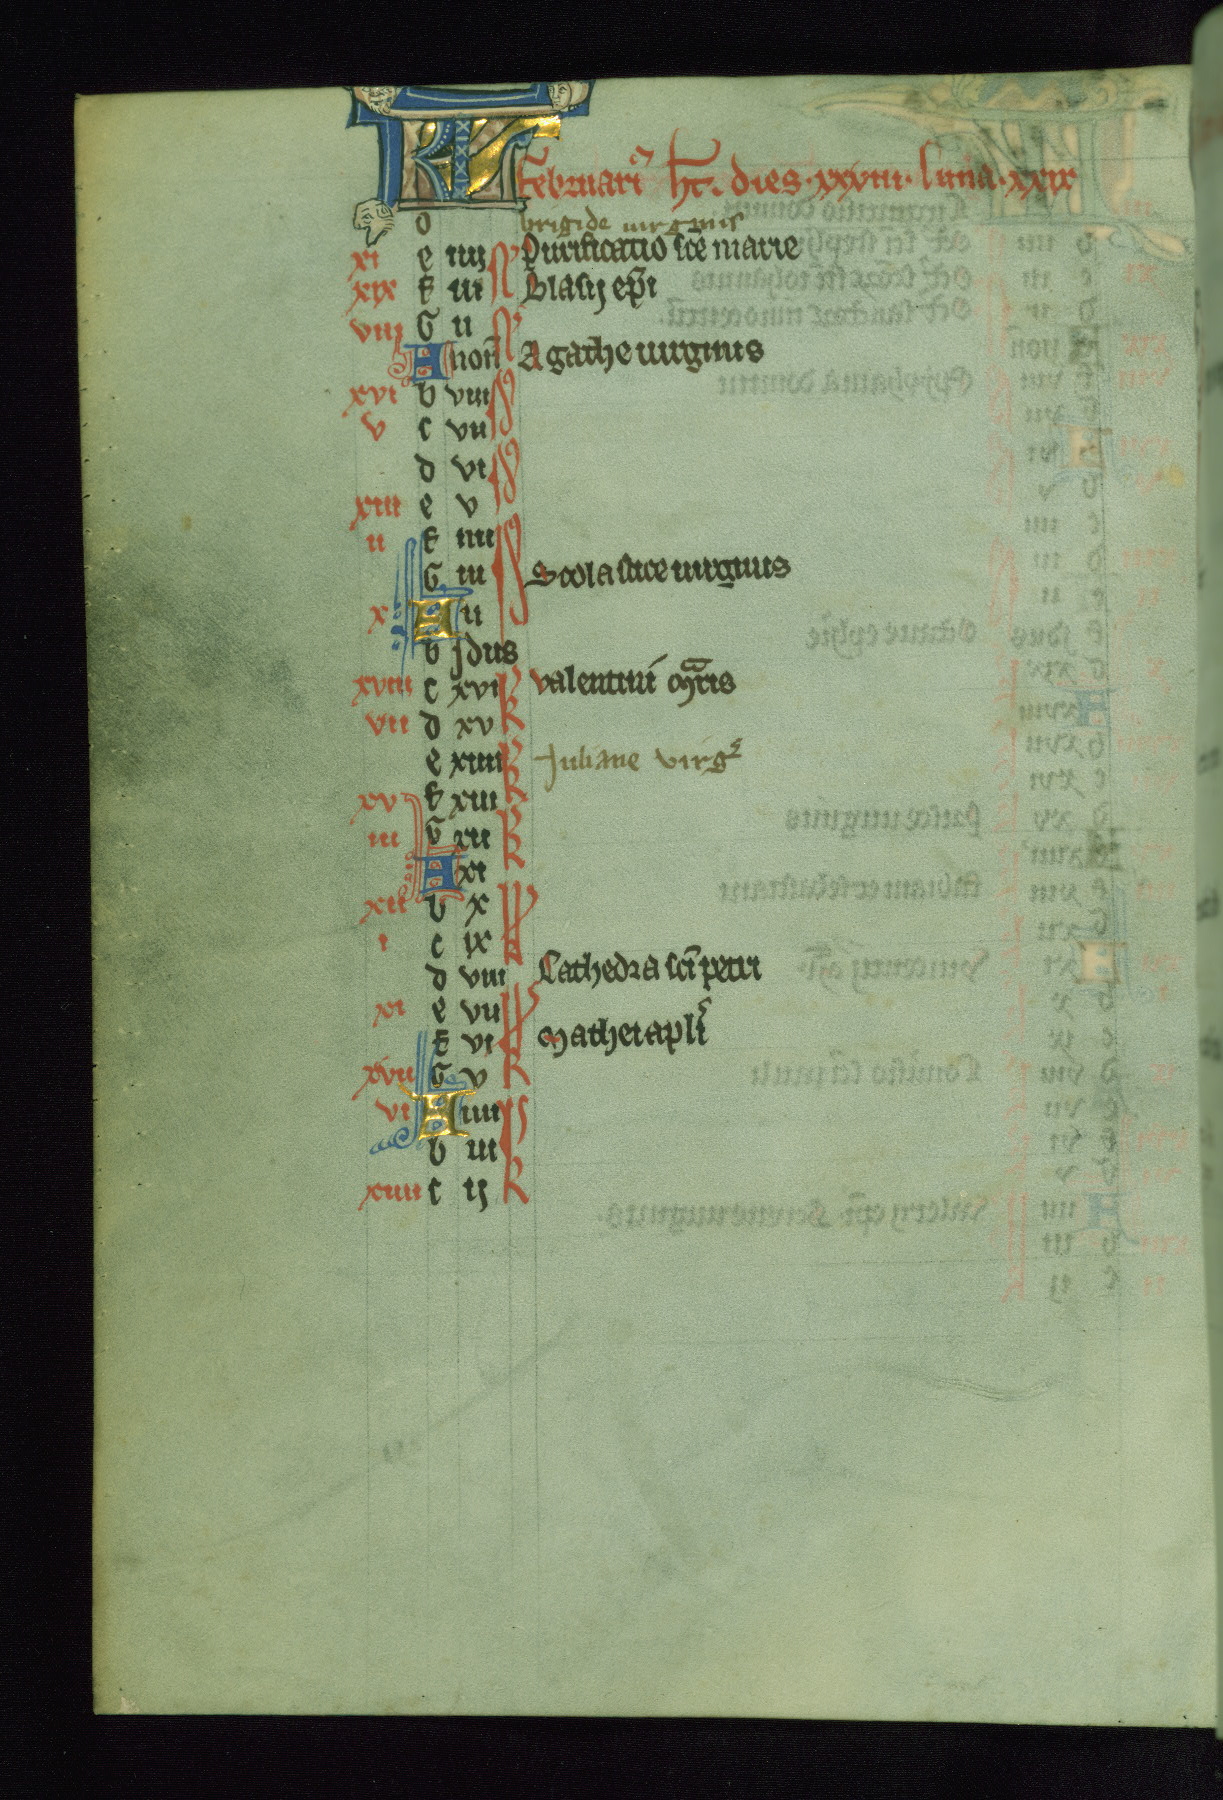 KL Februari' ht. dies. xxviii. luna. xxix
d brigide uirginis
xi e iiij N Purificatio sce marie
xix f iii Blasij epi
viii G ii N
A non Agathe uirginis
xvi b viii
v c vii
d vi
xiii e v
ii f iiii
G iii Scolastice uirginis
x A ii
b Jdus
xviii c xvi K valentini mris
vii d xv K
e xiiii K Juliane virg
xv f xiii K
iiii G xii K
A xi
xii b x
i c ix
d viii Cathedra sci petri
ix e vii
f vi Mathei apli
xvii G v K
vi A iiii
b iii
xiiii c ij K